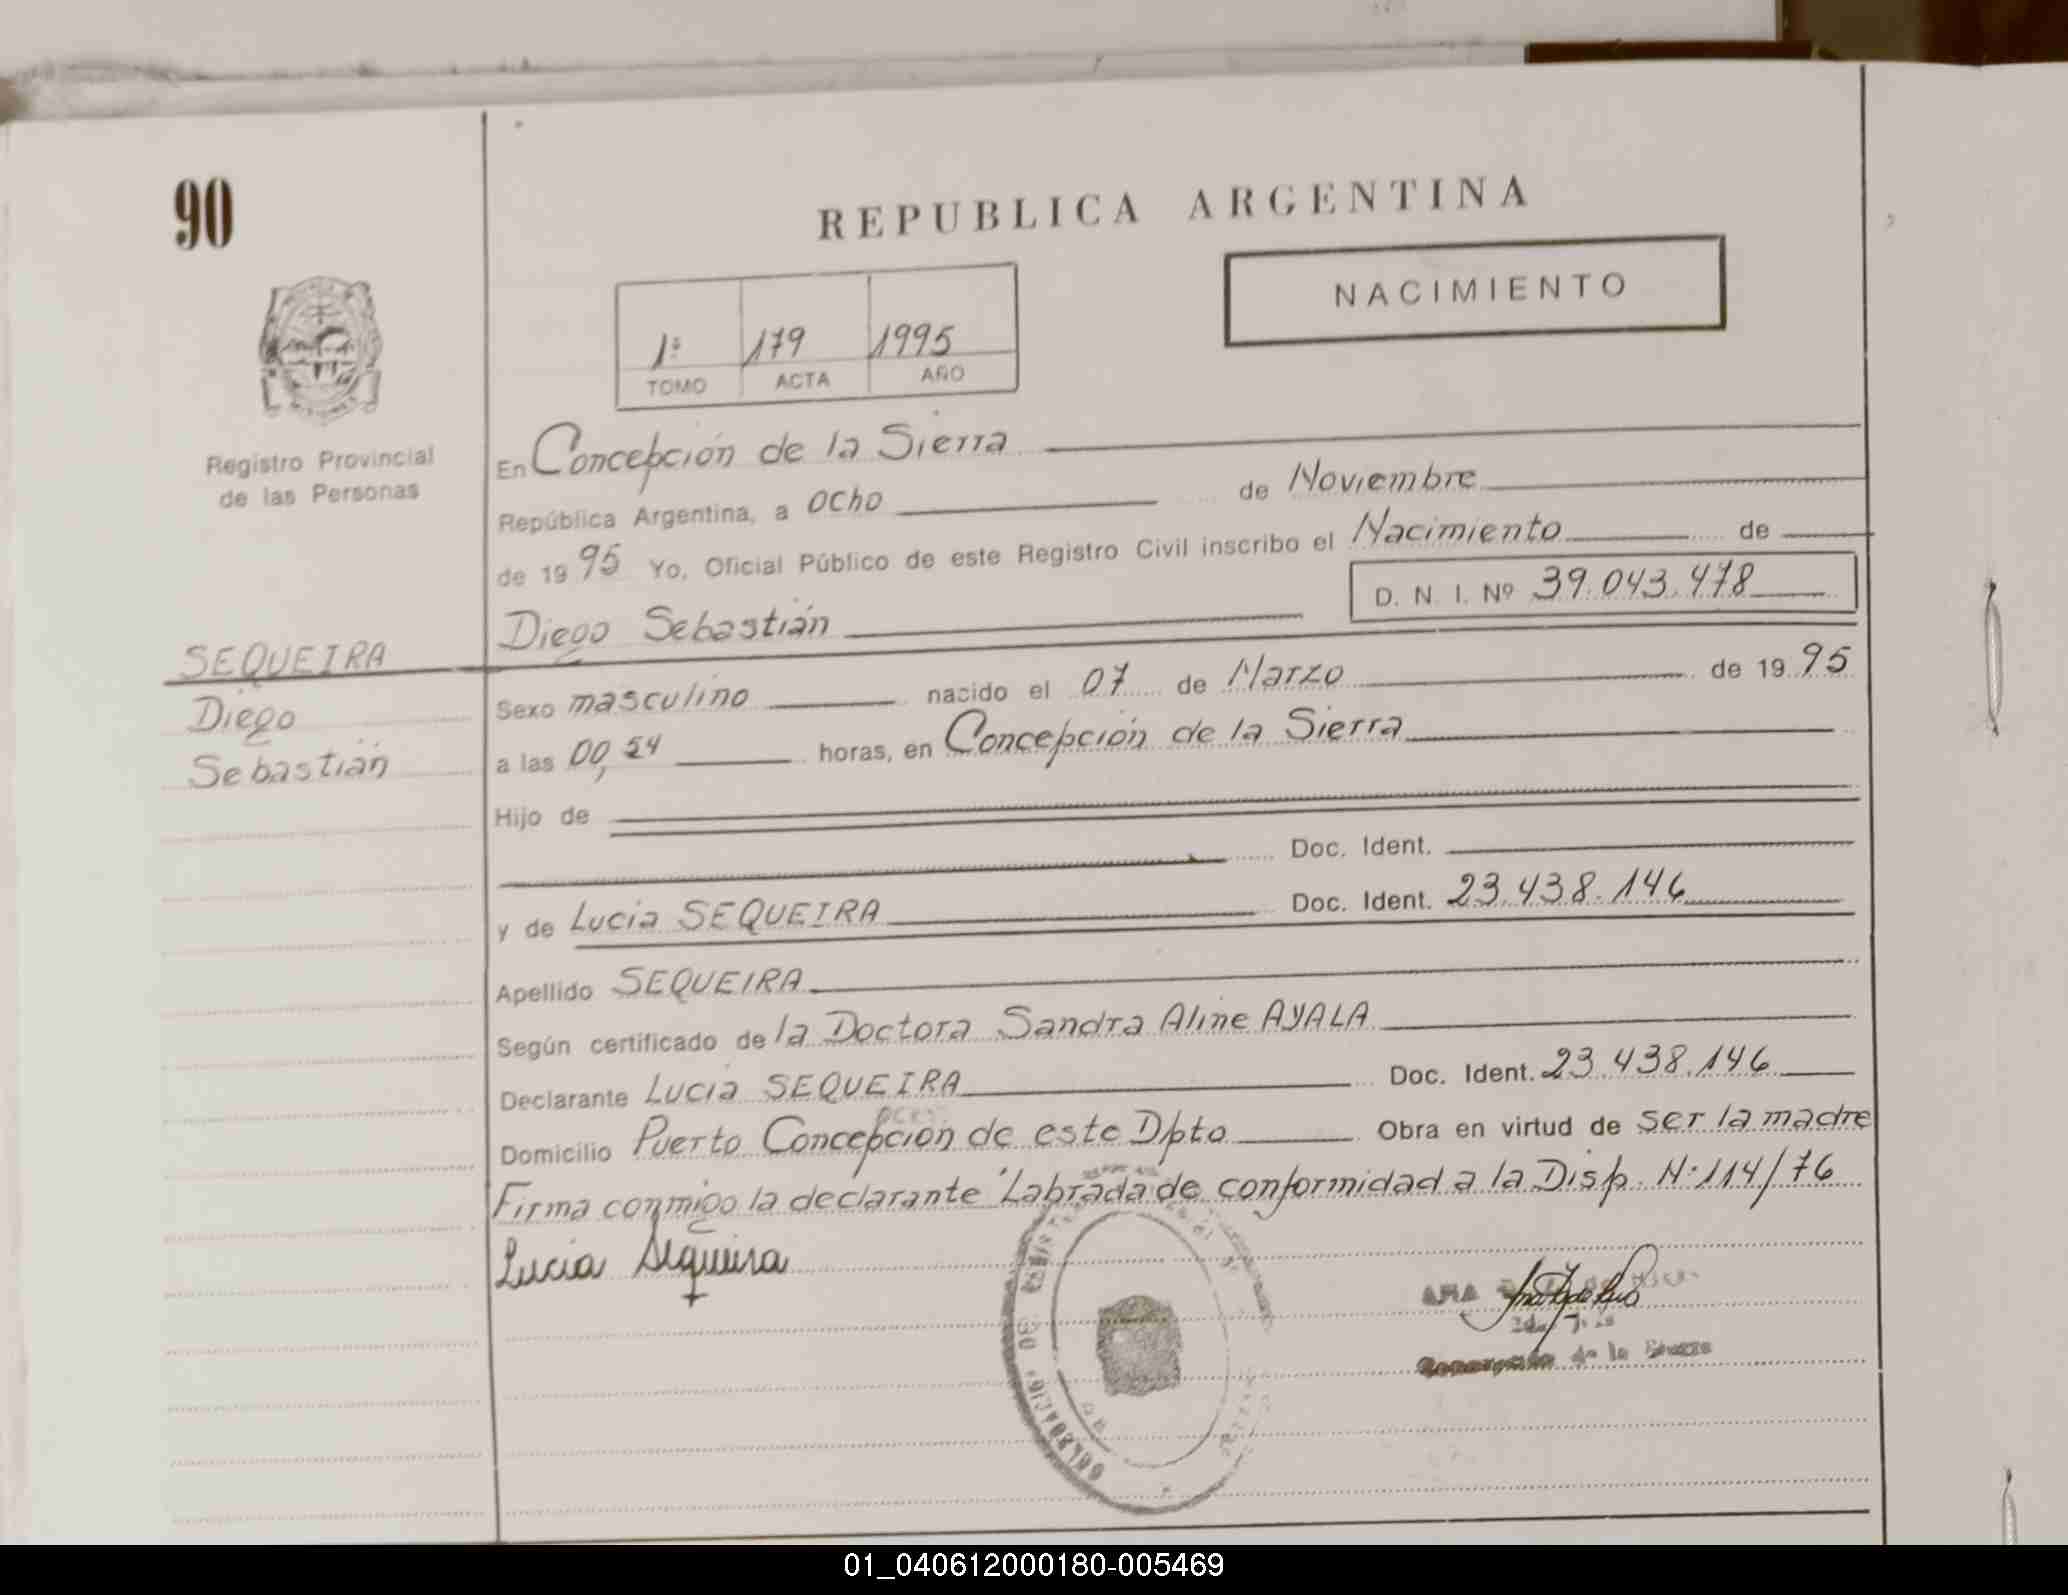 90
REPUBLICA ARGENTINA
NACIMIENTO
1º 179 1995
TOMO ACTA AÑO
Registro Provincial
de las Personas
SEQUEIRA
Diego
Sebastián
En Concepción de la Sierra
República Argentina, a ocho de Noviembre
de 1995 Yo, Oficial Público de este Registro Civil inscribo el Nacimiento de
D. N. I. Nº 39.043.478
Diego Sebastián
Sexo masculino nacido el 07 de Marzo de 1995
a las 00,54 horas, en Concepción de la Sierra
Hijo de
Doc. Ident.
y de Lucia SEQUEIRA Doc. Ident. 23.438.146
Apellido SEQUEIRA
Según certificado de la Doctora Sandra Aline AYALA
Declarante Lucia SEQUEIRA Doc. Ident. 23.438.146
Domicilio Puerto Concepción de este Dpto Obra en virtud de ser la madre
Firma conmigo la declarante Labrada de conformidad a la Disp. N:114/76
Lucia Sequeira
ANA
de la Sierra
01_040612000180-005469